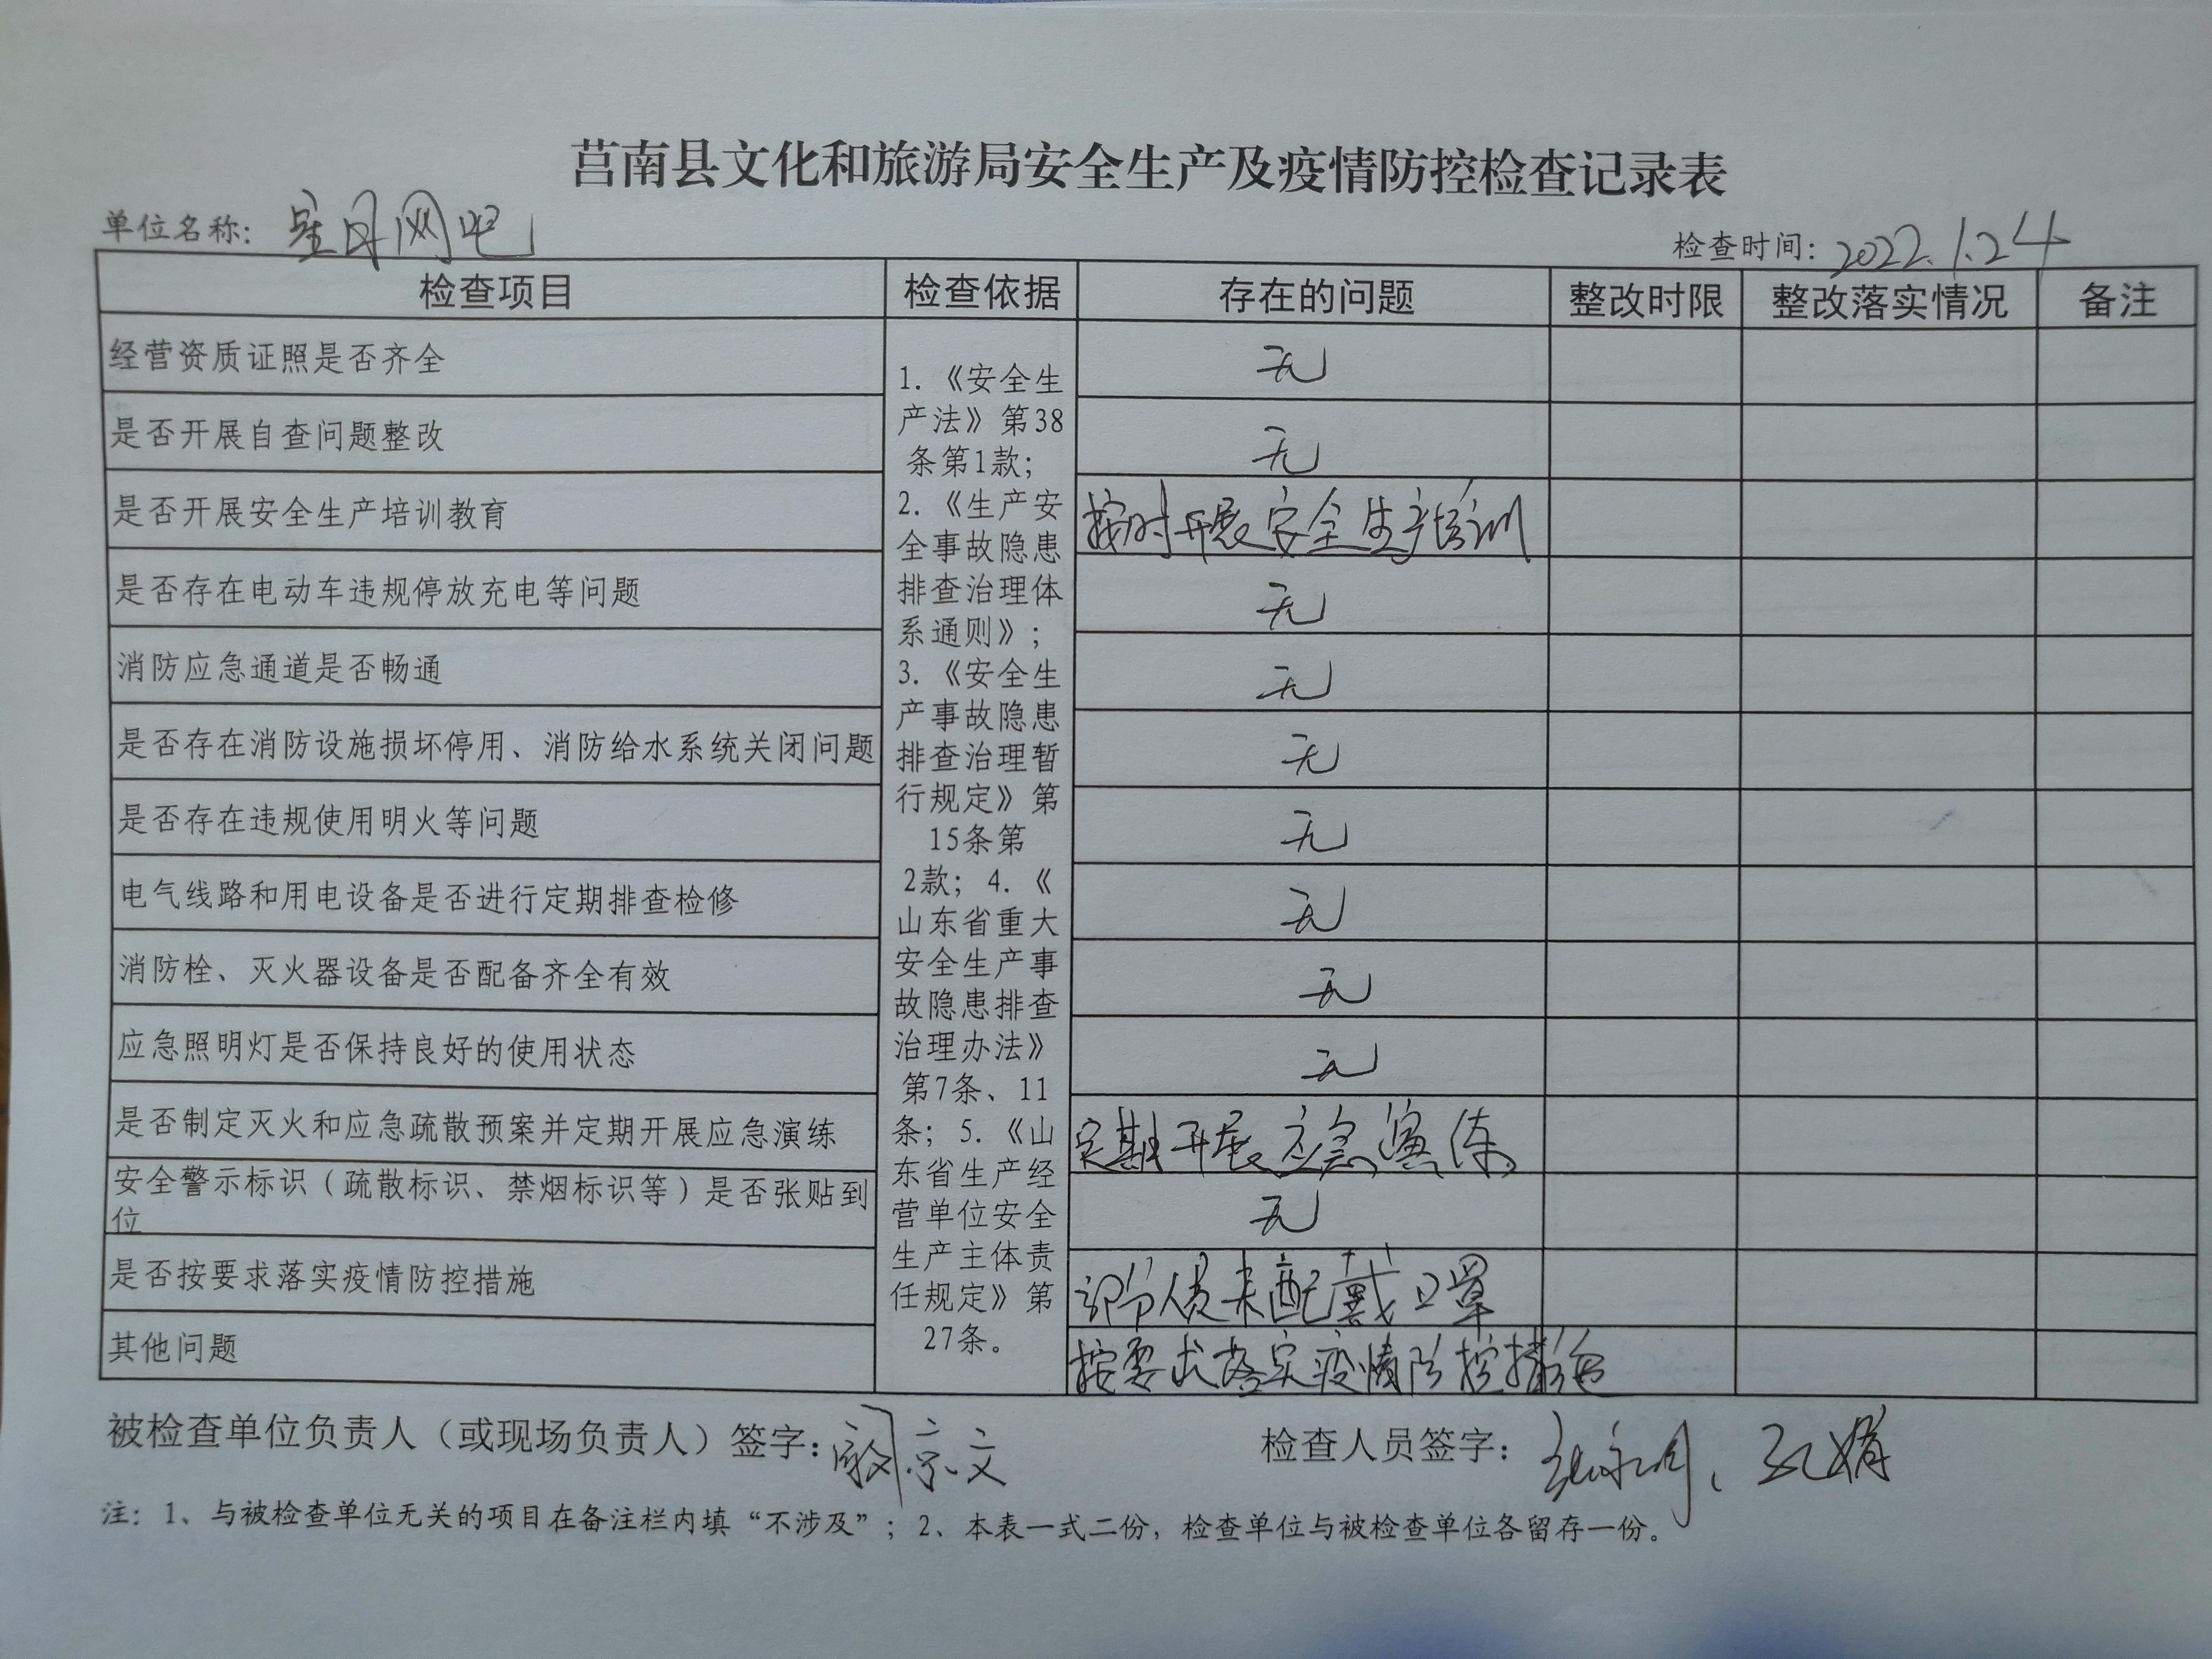 莒南县文化和旅游局安全生产及疫情防控检查记录表
单位名称: 星月网吧
检查时间: 2022.1.24
检查项目 检查依据 存在的问题 整改时限 整改落实情况 备注
经营资质证照是否齐全 无
是否开展自查问题整改 无
是否开展安全生产培训教育 按时开展安全生产培训
是否存在电动车违规停放充电等问题 无
消防应急通道是否畅通 无
是否存在消防设施损坏停用、消防给水系统关闭问题 无
是否存在违规使用明火等问题 无
电气线路和用电设备是否进行定期排查检修 无
消防栓、灭火器设备是否配备齐全有效 无
应急照明灯是否保持良好的使用状态 无
是否制定灭火和应急疏散预案并定期开展应急演练 定期开展应急演练
安全警示标识（疏散标识、禁烟标识等）是否张贴到
位 无
是否按要求落实疫情防控措施 部分人员未配戴口罩
其他问题 按要求落实疫情防控措施
1. 《安全生
产法》第38
条第1款；
2. 《生产安
全事故隐患
排查治理体
系通则》；
3. 《安全生
产事故隐患
排查治理暂
行规定》第
15条第
2款；4. 《
山东省重大
安全生产事
故隐患排查
治理办法》
第7条、11
条；5. 《山
东省生产经
营单位安全
生产主体责
任规定》第
27条。
被检查单位负责人（或现场负责人）签字: 京文
检查人员签字:
注：1、与被检查单位无关的项目在备注栏内填“不涉及”；2、本表一式二份，检查单位与被检查单位各留存一份。